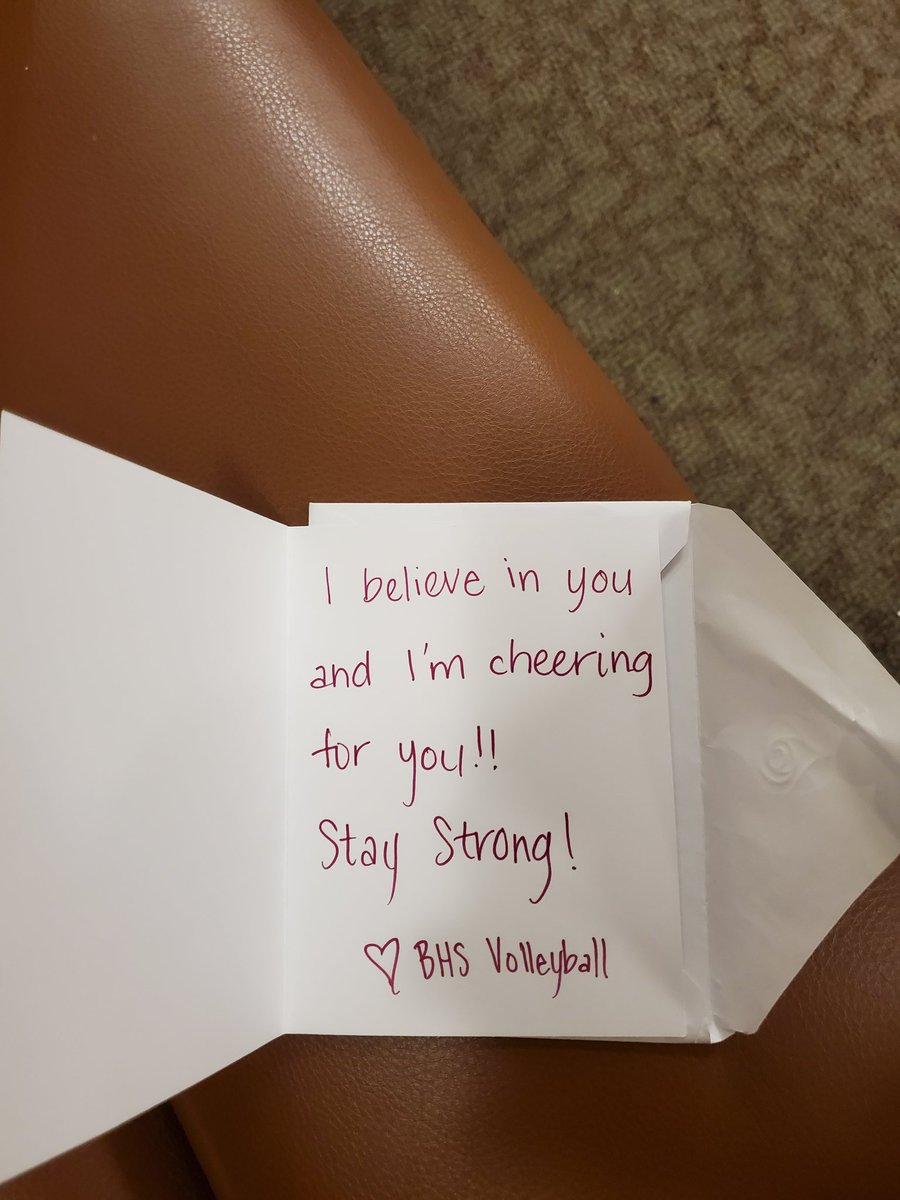 I believe in you
and I'm cheering
for you!!
Stay Strong!
♡ BHS Volleyball